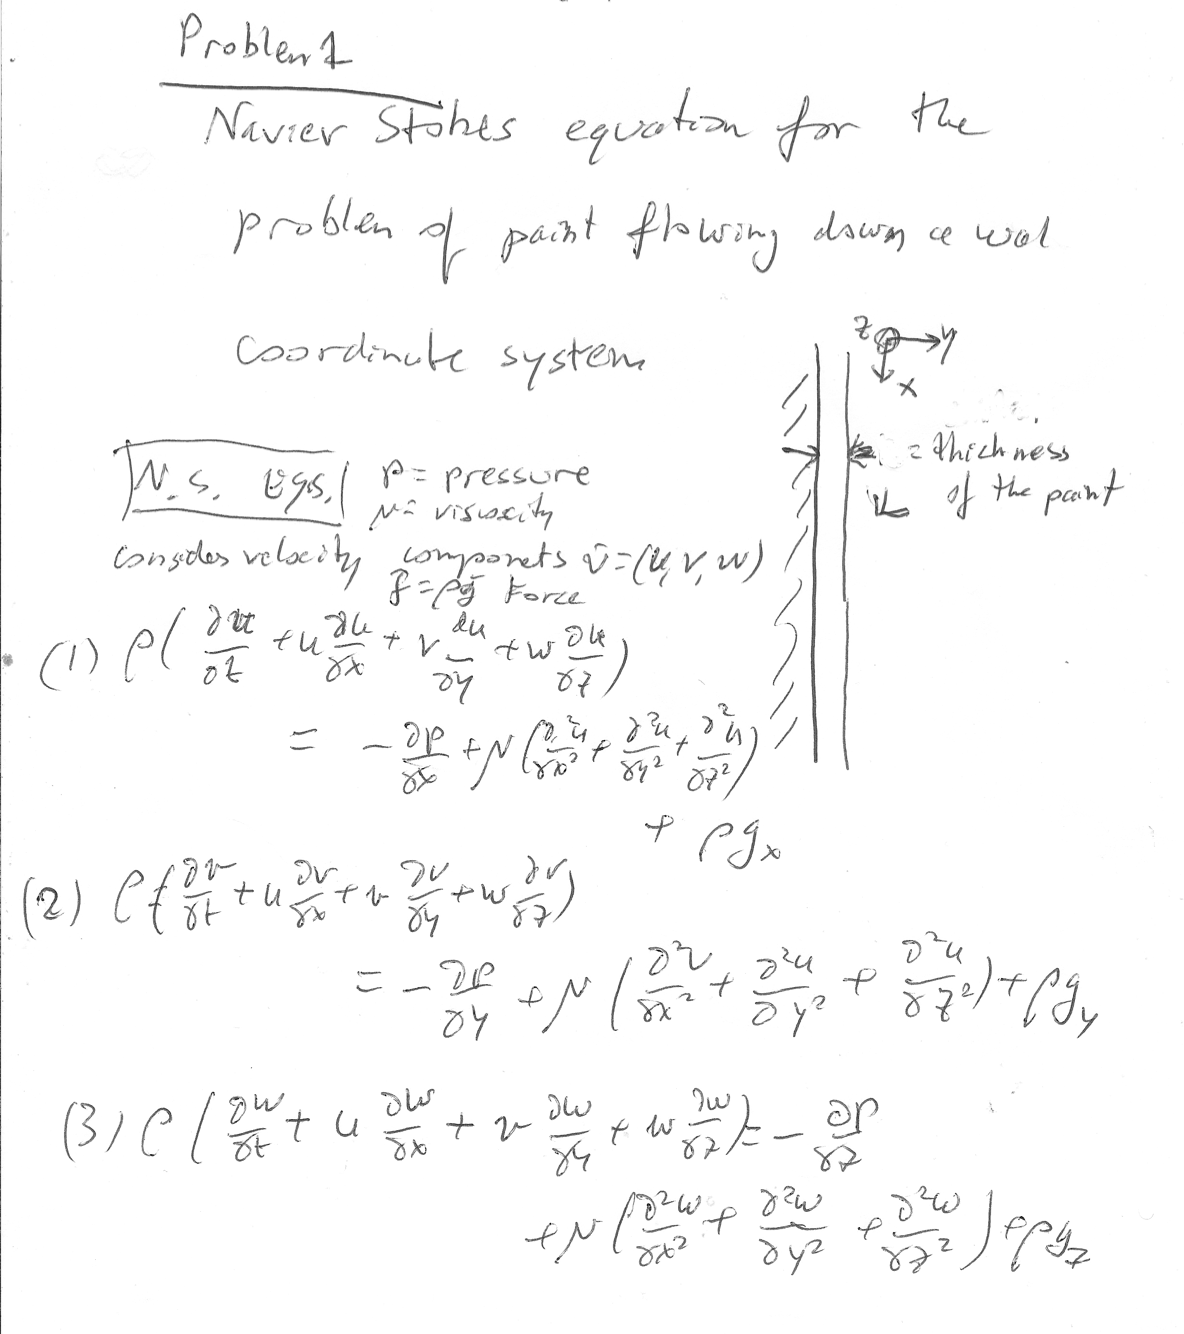 Problem 1
Navier Stokes equation for the
problem of paint flowing down a wal
coordinate system
z y
x
= thickness
of the paint
N.S. Eqs. p = pressure
μ = viscosity
consider velocity components v̄ = (u, v, w)
f̄ = ρḡ Force
(1) ρ( ∂u/∂t + u ∂u/∂x + v ∂u/∂y + w ∂u/∂z )
= - ∂p/∂x + μ ( ∂²u/∂x² + ∂²u/∂y² + ∂²u/∂z² )
+ ρg_x
(2) ρ( ∂v/∂t + u ∂v/∂x + v ∂v/∂y + w ∂v/∂z )
= - ∂p/∂y + μ ( ∂²v/∂x² + ∂²u/∂y² + ∂²u/∂z² ) + ρg_y
(3) ρ ( ∂w/∂t + u ∂w/∂x + v ∂w/∂y + w ∂w/∂z ) = - ∂p/∂z
+ μ ( ∂²w/∂x² + ∂²w/∂y² + ∂²w/∂z² ) + ρg_z